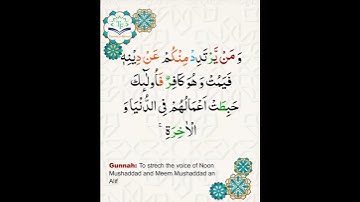 وَ مَنْ يَّرْتَدِدْ مِنْكُمْ عَنْ دِيْنِهٖ
فَيَمُتْ وَ هُوَ كَافِرٌ فَاُولٰٓىِٕكَ
حَبِطَتْ اَعْمَالُهُمْ فِی الدُّنْیَا وَ
الْاٰخِرَةِ ۚ
Gunnah: To strech the voice of Noon
Mushaddad and Meem Mushaddad an
Alif